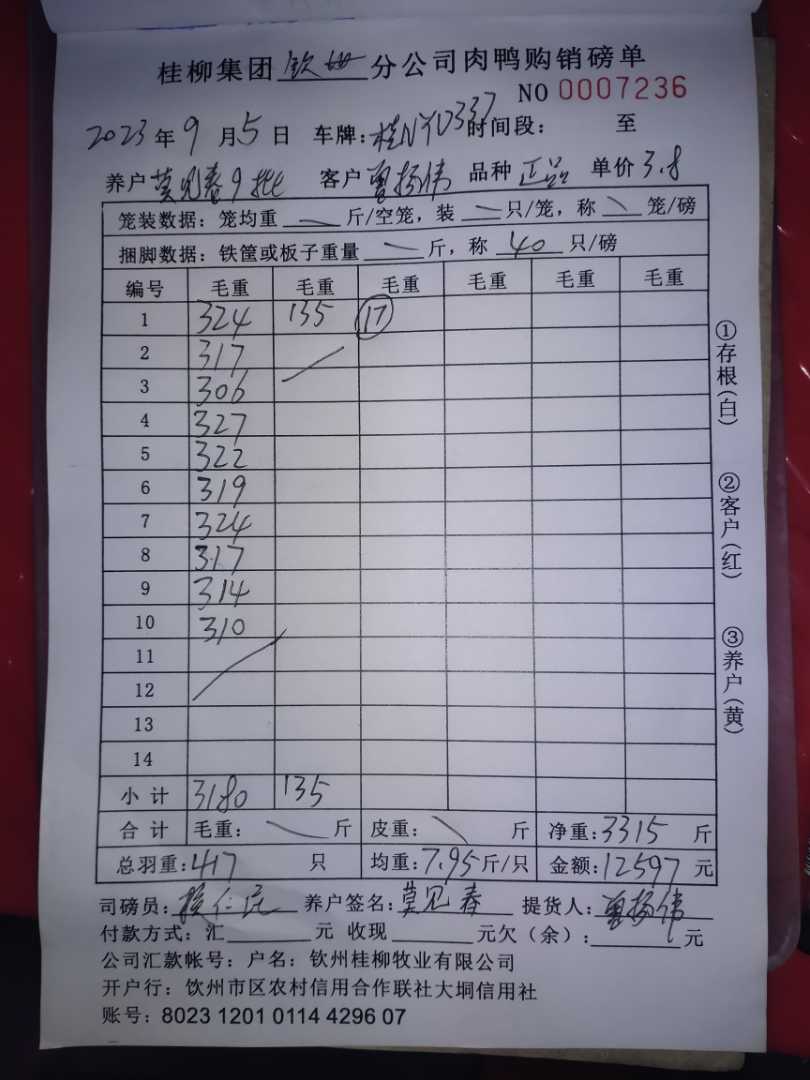 桂柳集团钦州分公司肉鸭购销磅单
NO 0007236
2023年9月5日 车牌:桂NYD337 时间段: 至
养户莫见春9批 客户曾扬伟 品种正品 单价3.8
笼装数据: 笼均重 斤/空笼, 装 只/笼, 称 笼/磅
捆脚数据: 铁筐或板子重量 斤, 称 40 只/磅
编号 毛重 毛重 毛重 毛重 毛重 毛重
1 324 135 17
2 317
3 306
4 327
5 322
6 319
7 324
8 317
9 314
10 310
11
12
13
14
小计 3180 135
合计 毛重: 斤 皮重: 斤 净重:3315 斤
总羽重:417 只 均重:7.95斤/只 金额:12597 元
司磅员: 养户签名:莫见春 提货人:曾扬伟
付款方式:汇 元 收现 元欠(余): 元
公司汇款帐号: 户名: 钦州桂柳牧业有限公司
开户行: 钦州市区农村信用合作联社大垌信用社
账号: 8023 1201 0114 4296 07
①存根(白)
②客户(红)
③养户(黄)